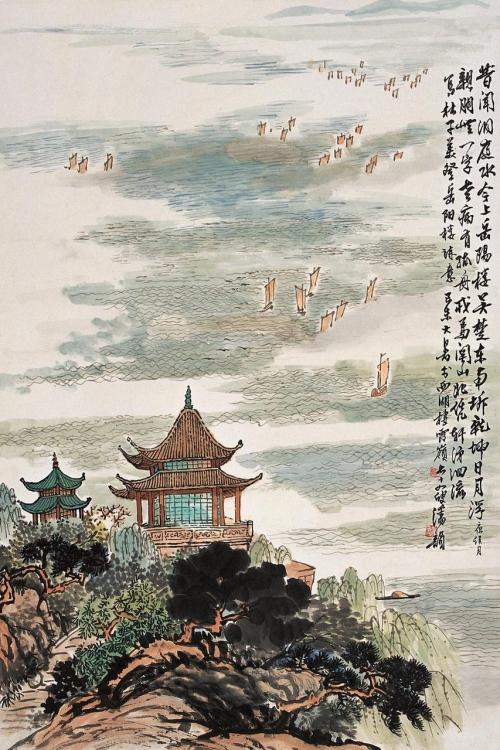 昔聞洞庭水今上岳陽樓吳楚東南坼乾坤日月浮
親朋無一字老病有孤舟戎馬關山北憑軒涕泗流
寫杜子美登岳陽樓詩意己未大暑於西湖棲霞嶺潘韻